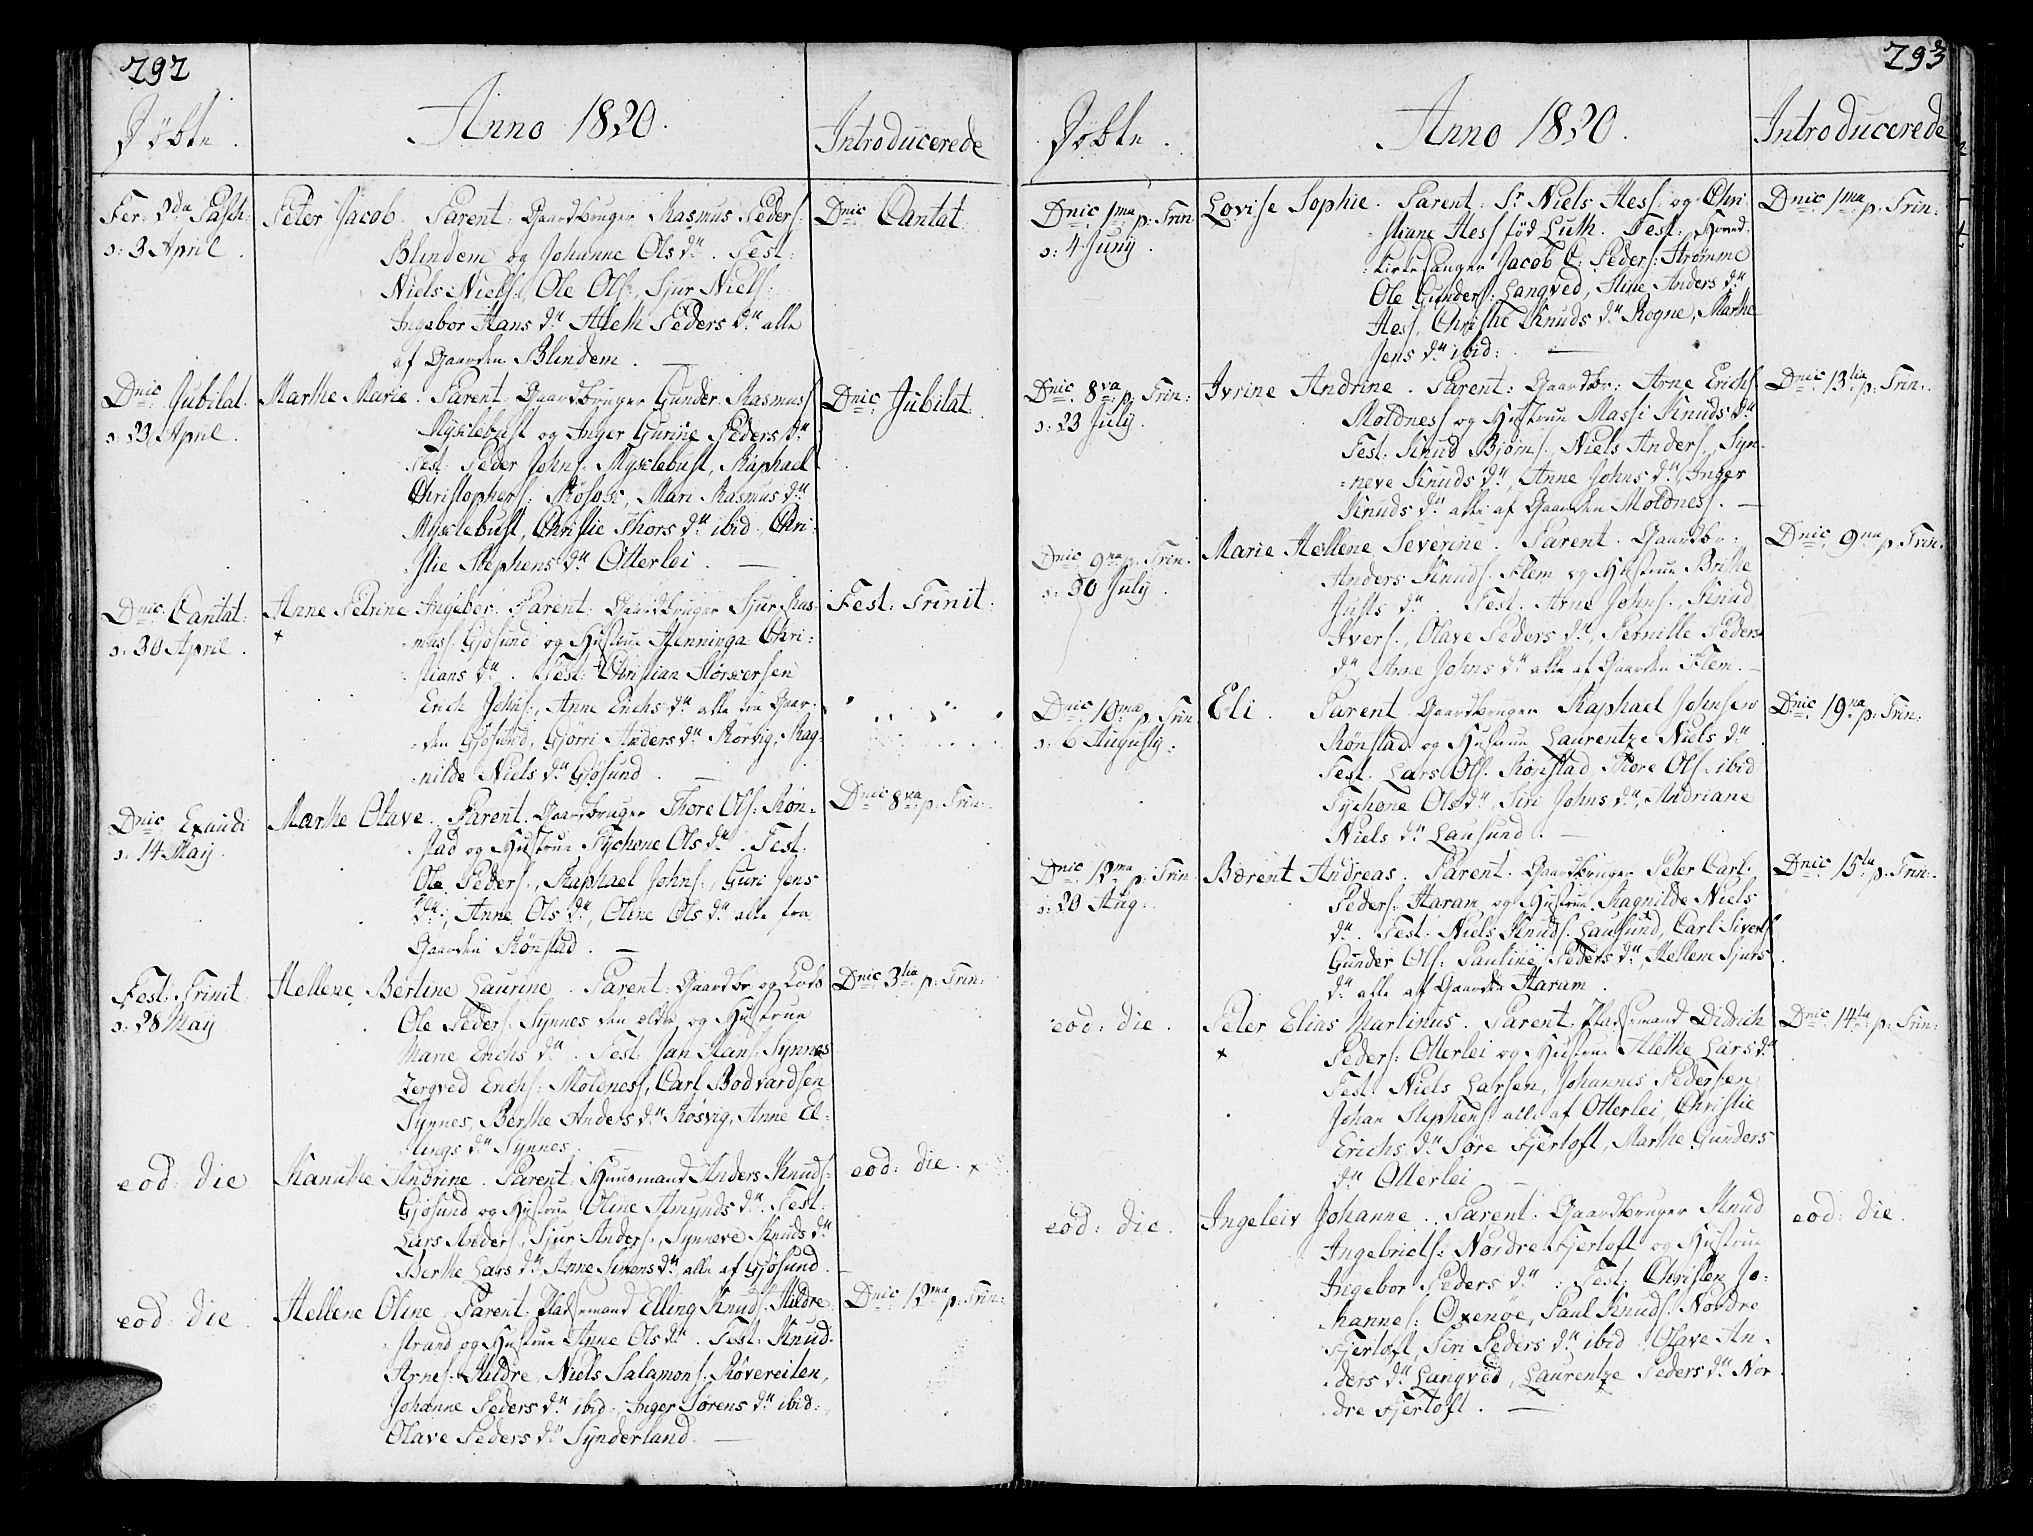 292
Døbte.
Anno 1820.
Introducerede
Fer: 2da Pasch:
ɔ: 3 April.
Peter Jacob. Parent: Gaardbruger Rasmus Peders:
Blindem og Johanne Olsdr. Test:
Niels Niels:, Ole Ols:, Sjur Niels:
Ingebor Hansdr. Aleth Pedersdr. alle
af Gaarden Blindem.
Dnic: Cantat:
Dnic: Jubilat:
ɔ: 23 April.
Marthe Marie. Parent: Gaardbruger Gunder Rasmuss:
Myclebust og Inger Gurine Pedersdr.
Test: Peder Johns: Myclebust, Raphael
Christophers: Røsok, Mari Rasmusdr.
Myclebust, Christie Thorsdr. ibid:, Chri-
stie Stephensdr. Otterlei.
Dnic: Jubilat:
Dnic: Cantat:
ɔ: 30 April.
Anne Petrine Ingeber. Parent: Gaardbruger Sjur Ras-
mus: Gjøsund og Hustrue Henninga Chri-
stiansdr. Test: Christian Størkersen
Erich Johns:, Anne Erichsdr. alle fra Gaar-
den Gjøsund, Gjorri Andersdr. Rørvig, Rag-
nilde Nielsdr. Gjøsund.
Fest: Trinit:
Dnic: Exaudi
ɔ: 14 Maij.
Marthe Olave. Parent: Gaardbruger Thore Ols: Røn-
stad og Hustrue Tychone Olsdr. Test:
Ole Peders:, Raphael Johns:, Guri Jens
dr., Anne Olsdr., Oline Olsdr. alle fra
Gaarden Rønstad.
Dnic: 8va p: Trin:
Fest: Trinit:
ɔ: 28 Maij
Hellene Berline Laurine. Parent: Gaardbr. og Lods
Ole Peders: Synnes den ældre og Hustrue
Marie Erichsdr. Test: Jan Hans: Synnes
Zergved Erichs: Moldness, Carl Bodvardsen
Synnes, Berthe Andersdr. Røsvig, Anne El-
lingsdr. Synnes.
Dnic: 3tia p: Trin:
eod: die
Kanutte Andrine. Parent: Huusmand Anders Knuds:
Gjøsund og Hustrue Oline Amundsdr. Test:
Lars Anders:, Sjur Anders:, Synneve Knudsdr.
Berthe Larsdr. Anne Simensdr. alle af Gjøsund.
eod: die.
eod: die.
Hellene Oline. Parent: Pladsemand Elling Knuds: Hildre-
strand og Hustrue Anne Olsdr. Test: Knud
Arnes: Hildre, Niels Salamons: Røvereiten,
Johanne Pedersdr. ibid:, Inger Sørensdr. ibid:,
Olave Pedersdr. Synderland.
Dnic: 12ma p: Trin:
293
Døbte.
Anno 1820.
Introducerede
Dnic: 1ma p: Trin
ɔ: 4 Junij.
Lovise Sophie. Parent: Sr. Niels Hess: og Chri-
stiane Hess fød Luth. Test: Hoved-
kirkesanger Jacob C: Peders: Strømme
Ole Gunders: Langved, Stine Andersdr.
Hess, Christie Knudsdr. Rogne, Marthe
Jensdr. ibid:
Dnic: 1ma p: Trin:
Dnic: 8va p: Trin:
ɔ: 23 July.
Ivrine Andrine. Parent: Gaardbr: Arne Erichs:
Moldness og Hustrue Massi Knudsdr.
Test: Knud Bjørns:, Niels Anders:, Syn-
neve Knudsdr., Anne Johnsdr., Inger
Knudsdr. alle af Gaarden Moldness.
Dnic: 13tia p: Trin:
Dnic: 9na p: Trin:
ɔ: 30 July.
Marie Hellene Severine. Parent: Gaardbr.
Anders Knuds: Flem og Hustrue Brithe
Justsdr. Test: Arne Johns:, Knud
Ivers:, Olave Pedersdr., Pernille Peders
dr. Anne Johnsdr. alle af Gaarden Flem.
Dnic: 9na p: Trin:
Dnic: 10ma p: Trin
ɔ: 6 Augustij:
Eli. Parent: Gaardbruger Raphael Johnsen
Rønstad og Hustrue Laurentze Nielsdr.
Test: Lars Ols: Rønstad, Thore Ols: ibid
Tychone Olsdr., Siri Johnsdr., Andriane
Nielsdr. Lausund.
Dnic: 19na p: Trin:
Dnic: 12ma p: Trin
ɔ: 20 Aug:
Bærent Andreas. Parent: Gaardbruger Peter Carl
Peders: Haram og Hustrue Ragnilde Niels
dr. Test: Niels Knuds: Lausund, Carl Siverts:
Gunder Ols: Pauline Pedersdr., Hellene Sjurs
dr. alle af Gaarden Haram.
Dnic: 15ta p: Trin:
eod: die.
Peter Elias Martinus. Parent: Pladsemand Didrich
Peders: Otterlei og Hustrue Alethe Larsdr.
Test: Niels Larsen, Johannes Pedersen
Johan Stephens: alle af Otterlei, Christie
Erichsdr. Søre Fjertoft, Marthe Gunders
dr. Otterlei
Dnic: 14ta p: Trin:
eod: die.
Ingeleiv Johanne. Parent: Gaardbruger Knud
Ingebricts: Nordre Fjertoft og Hustrue
Ingebor Pedersdr. Test: Christen Jo-
hannes: Oxenøe, Paul Knuds: Nordre
Fjertoft, Siri Pedersdr. ibid Olave An-
dersdr. Langved, Laurentze Pedersdr. Nor-
dre Fjertoft.
eod: die.